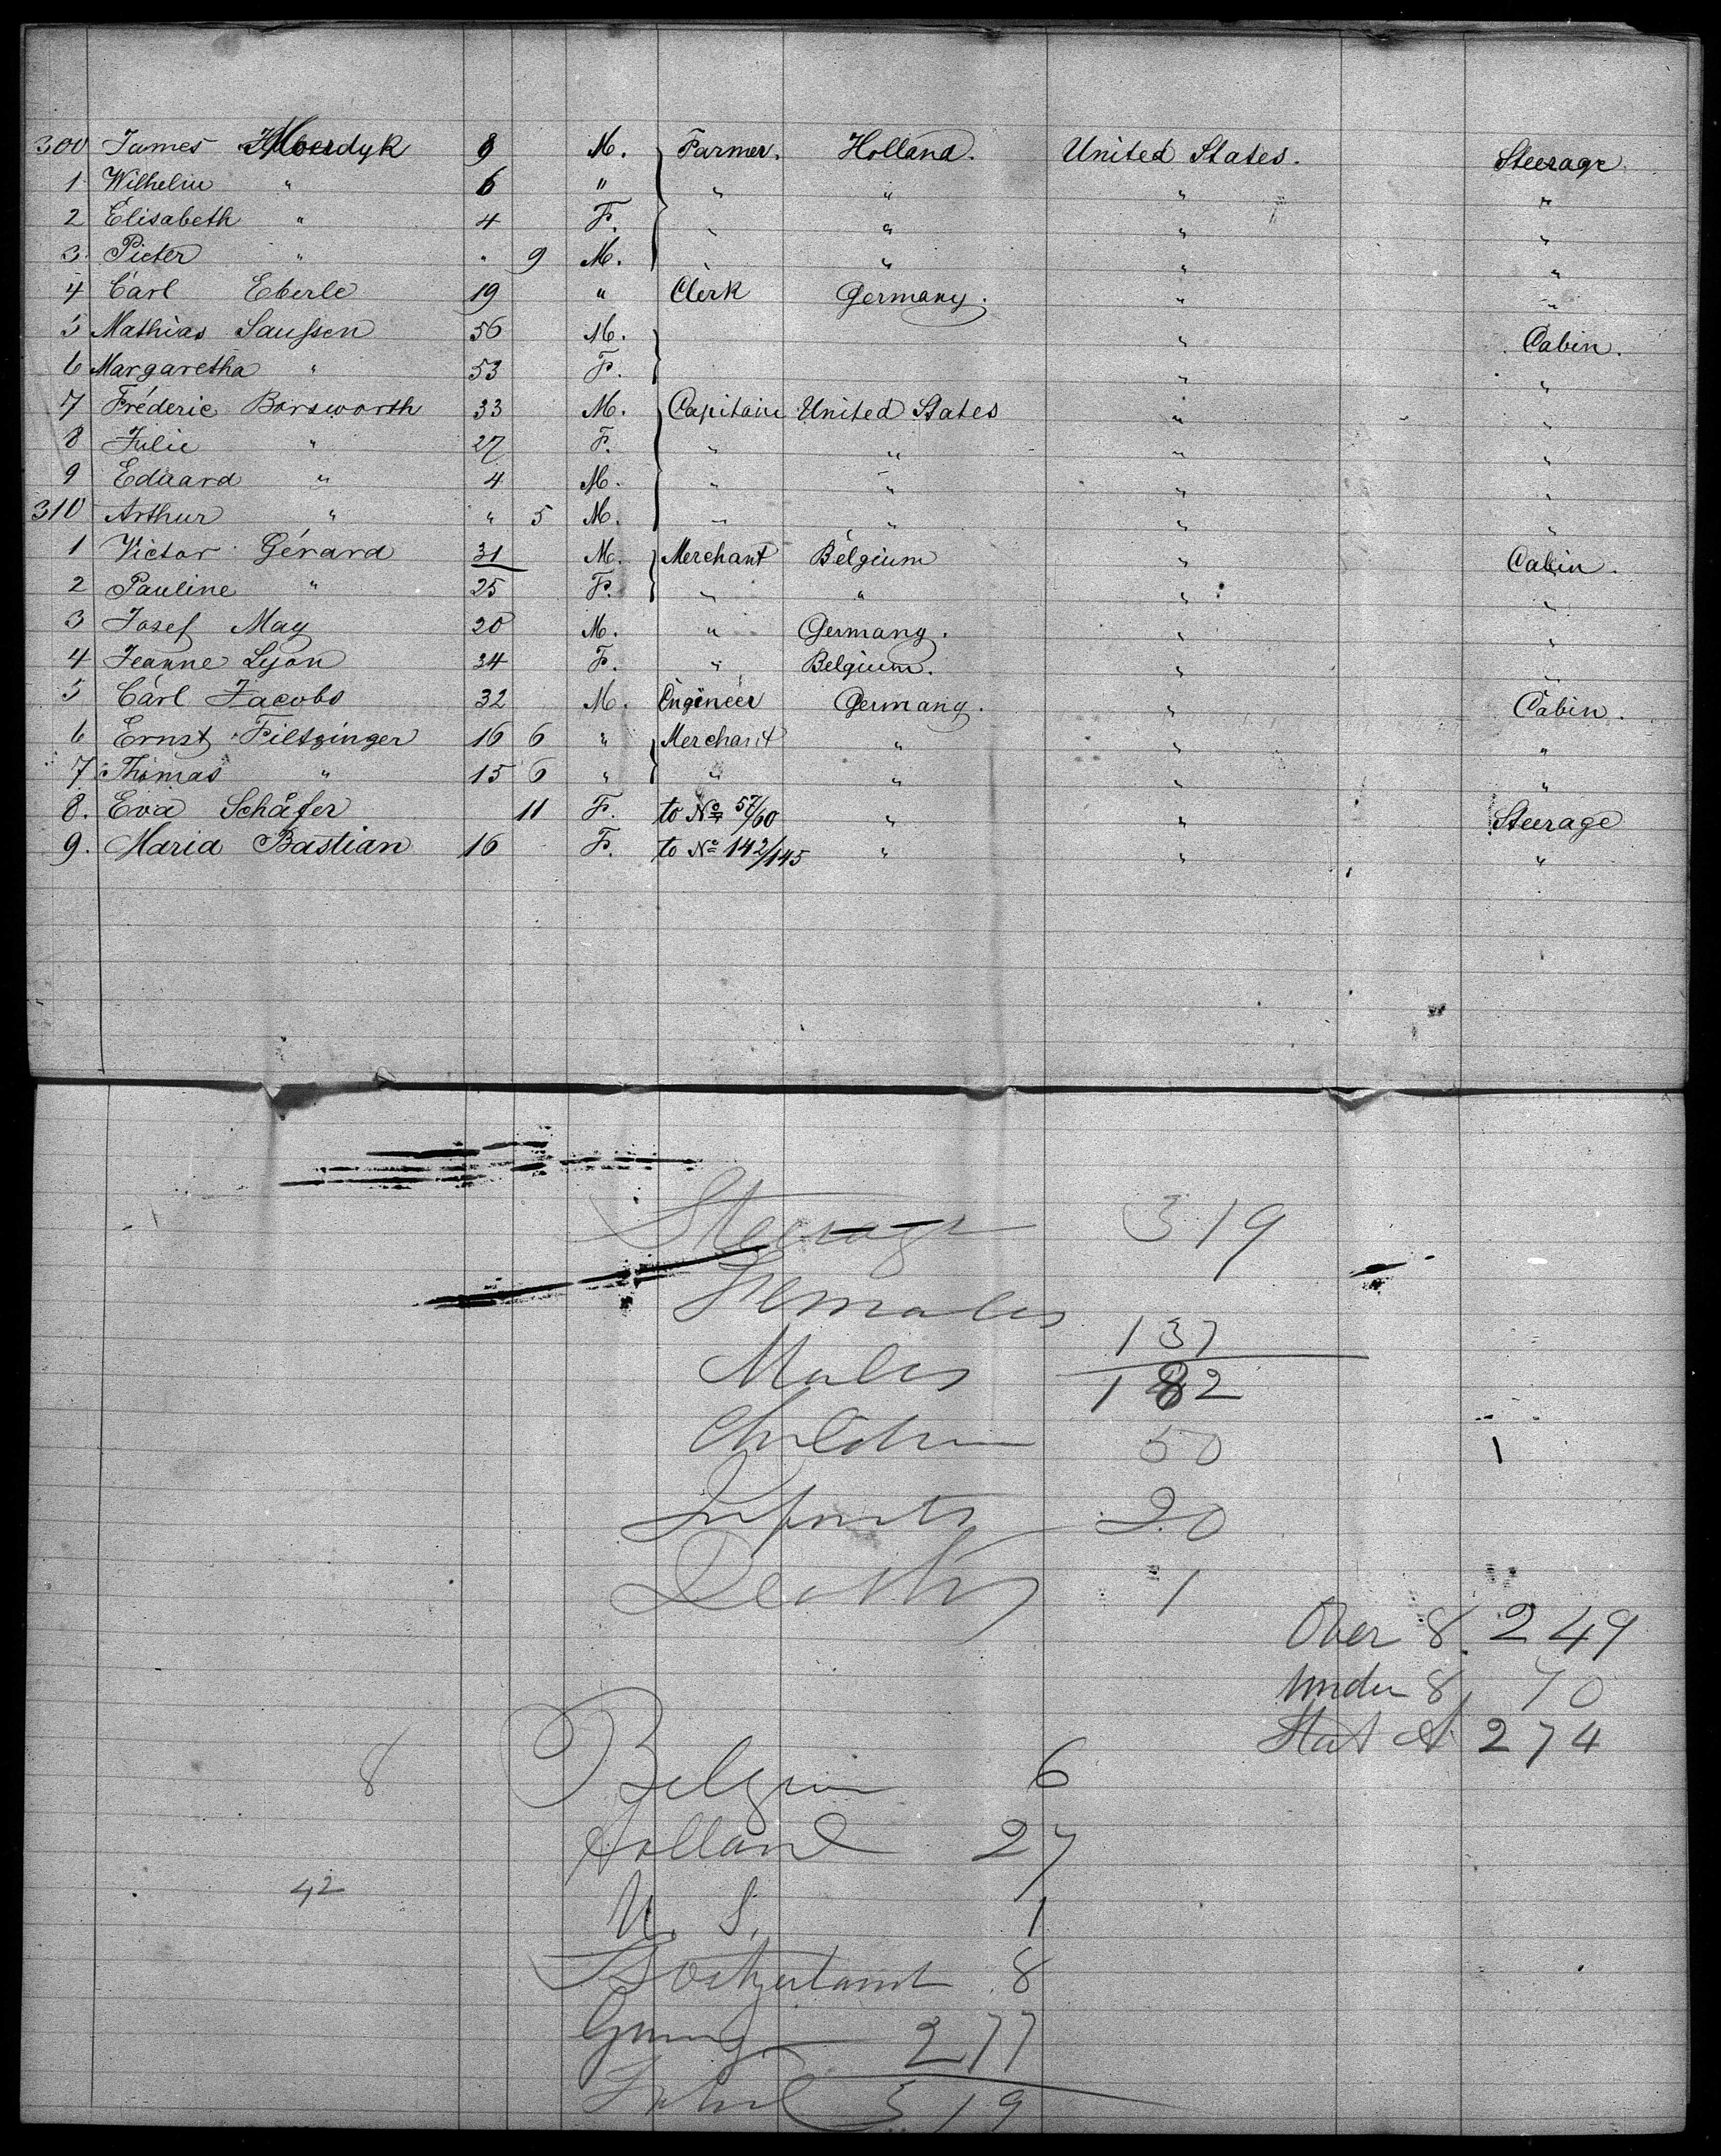 300 James Moerdyk 9 M. Farmer. Holland. United States. Steerage.
1 Wilhelm " 6 " " " " "
2 Elisabeth " 4 F. " " " "
3. Pieter " " 9 M. " " " "
4 Carl Eberle 19 " Clerk Germany. " "
5 Mathias Saussen 56 M. " Cabin.
6 Margaretha " 53 F. " "
7 Fréderic Borsworth 33 M. Capitaine United States " "
8 Julie " 27 F. " " " "
9 Eduard " 4 M. " " " "
310 Arthur " " 5 M. " " " "
1 Victor Gérard 31 M. Merchant Belgium " Cabin.
2 Pauline " 25 F. " " " "
3 Josef May 20 M. " Germany. " "
4 Jeanne Lyon 34 F. " Belgium. " "
5 Carl Jacobs 32 M. Engineer Germany. " Cabin.
6 Ernst Filtzinger 16 6 " Merchant " " "
7 Thomas " 15 6 " " " " "
8. Eva Schäfer 11 F. to No 57/60 " " Steerage
9. Maria Bastian 16 F. to No 142/145 " " "
Steerage 319
Females 137
Males 182
Children 50
Infants 20
Deaths 1
Over 8 249
Under 8 70
Stat 274
8 Belgium 6
Holland 27
42
U. S. 1
Switzerland 8
Germany 277
Total 319